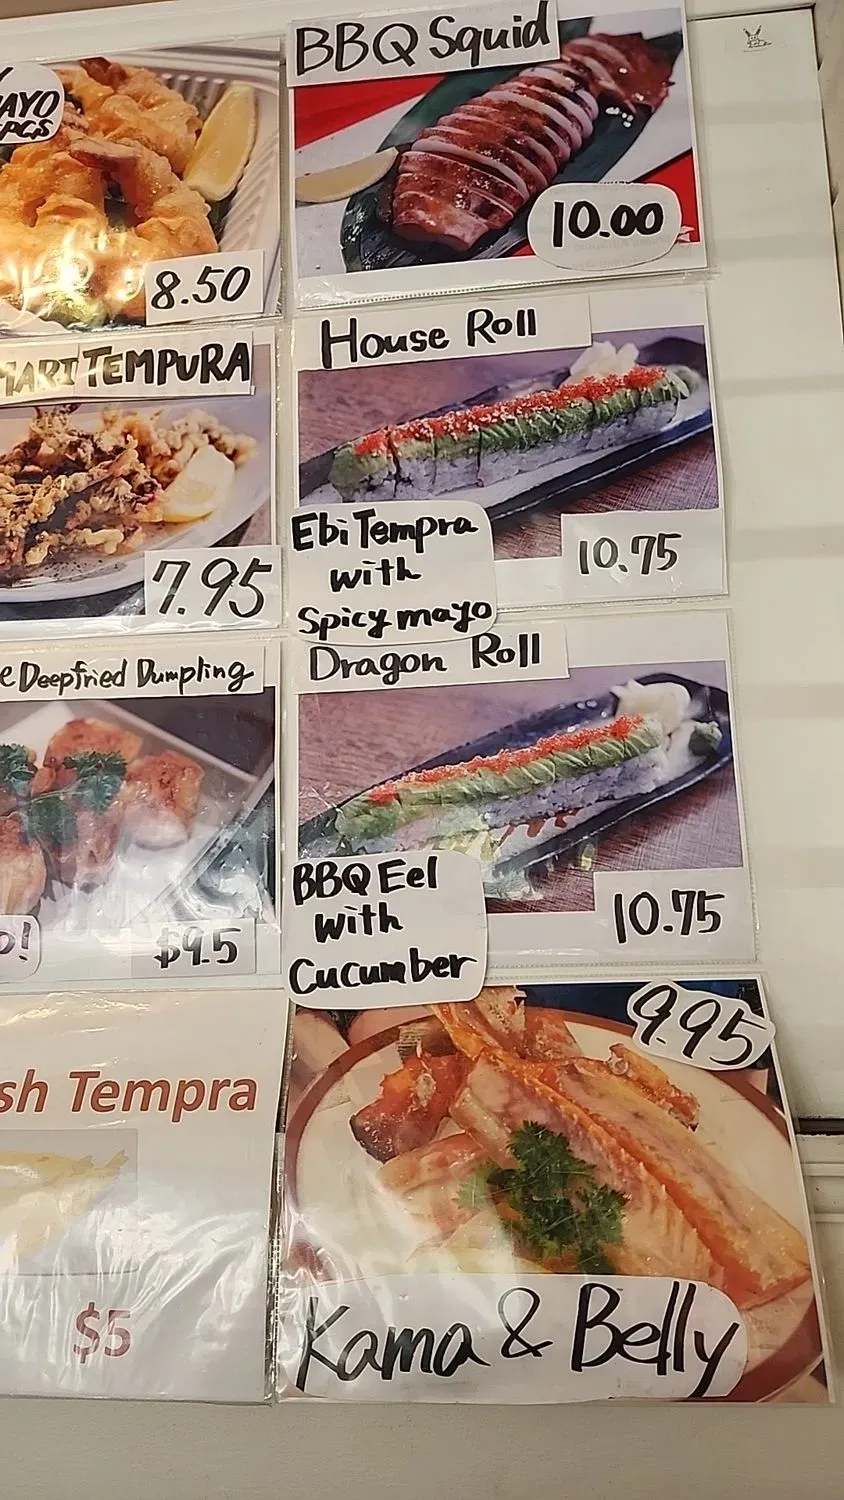 MAYO
PCS
8.50
MARI TEMPURA
7.95
e Deepfried Dumpling
o!
$9.5
sh Tempra
$5
BBQ Squid
10.00
House Roll
Ebi Tempra
with
Spicy mayo
10.75
Dragon Roll
BBQ Eel
with
Cucumber
10.75
9.95
Kama & Belly